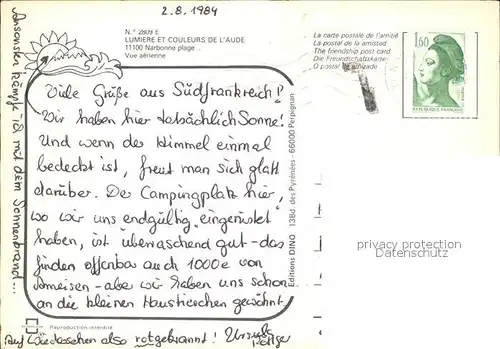 2.8.1984
N.° 2809 E
LUMIERE ET COULEURS DE L'AUDE
11100 Narbonne plage
Vue aérienne
La carte postale de l'amitié
La postal de la amistad
The friendship post card
Die Freundschaftskarte
O postal da amizade
1,60
REPUBLIQUE FRANÇAISE
Viele Grüße aus Südfrankreich!
Wir haben hier tatsächlich Sonne!
Und wenn der Himmel einmal
bedeckt ist, freut man sich glatt
darüber. Der Campingplatz hier,
wo wir uns endgültig eingenistet
haben, ist überraschend gut - das
finden offenbar auch 1000e von
Ameisen - aber wir haben uns schon
an die kleinen Haustierchen gewöhnt.
Ansonsten kämpf ich mit dem Sonnenbrand...
Auf Wiedersehen also rotgebrannt! Ursula
Editions DINO 138d, des Pyrénées - 66000 Perpignan
Reproduction interdite
privacy protection
personal data